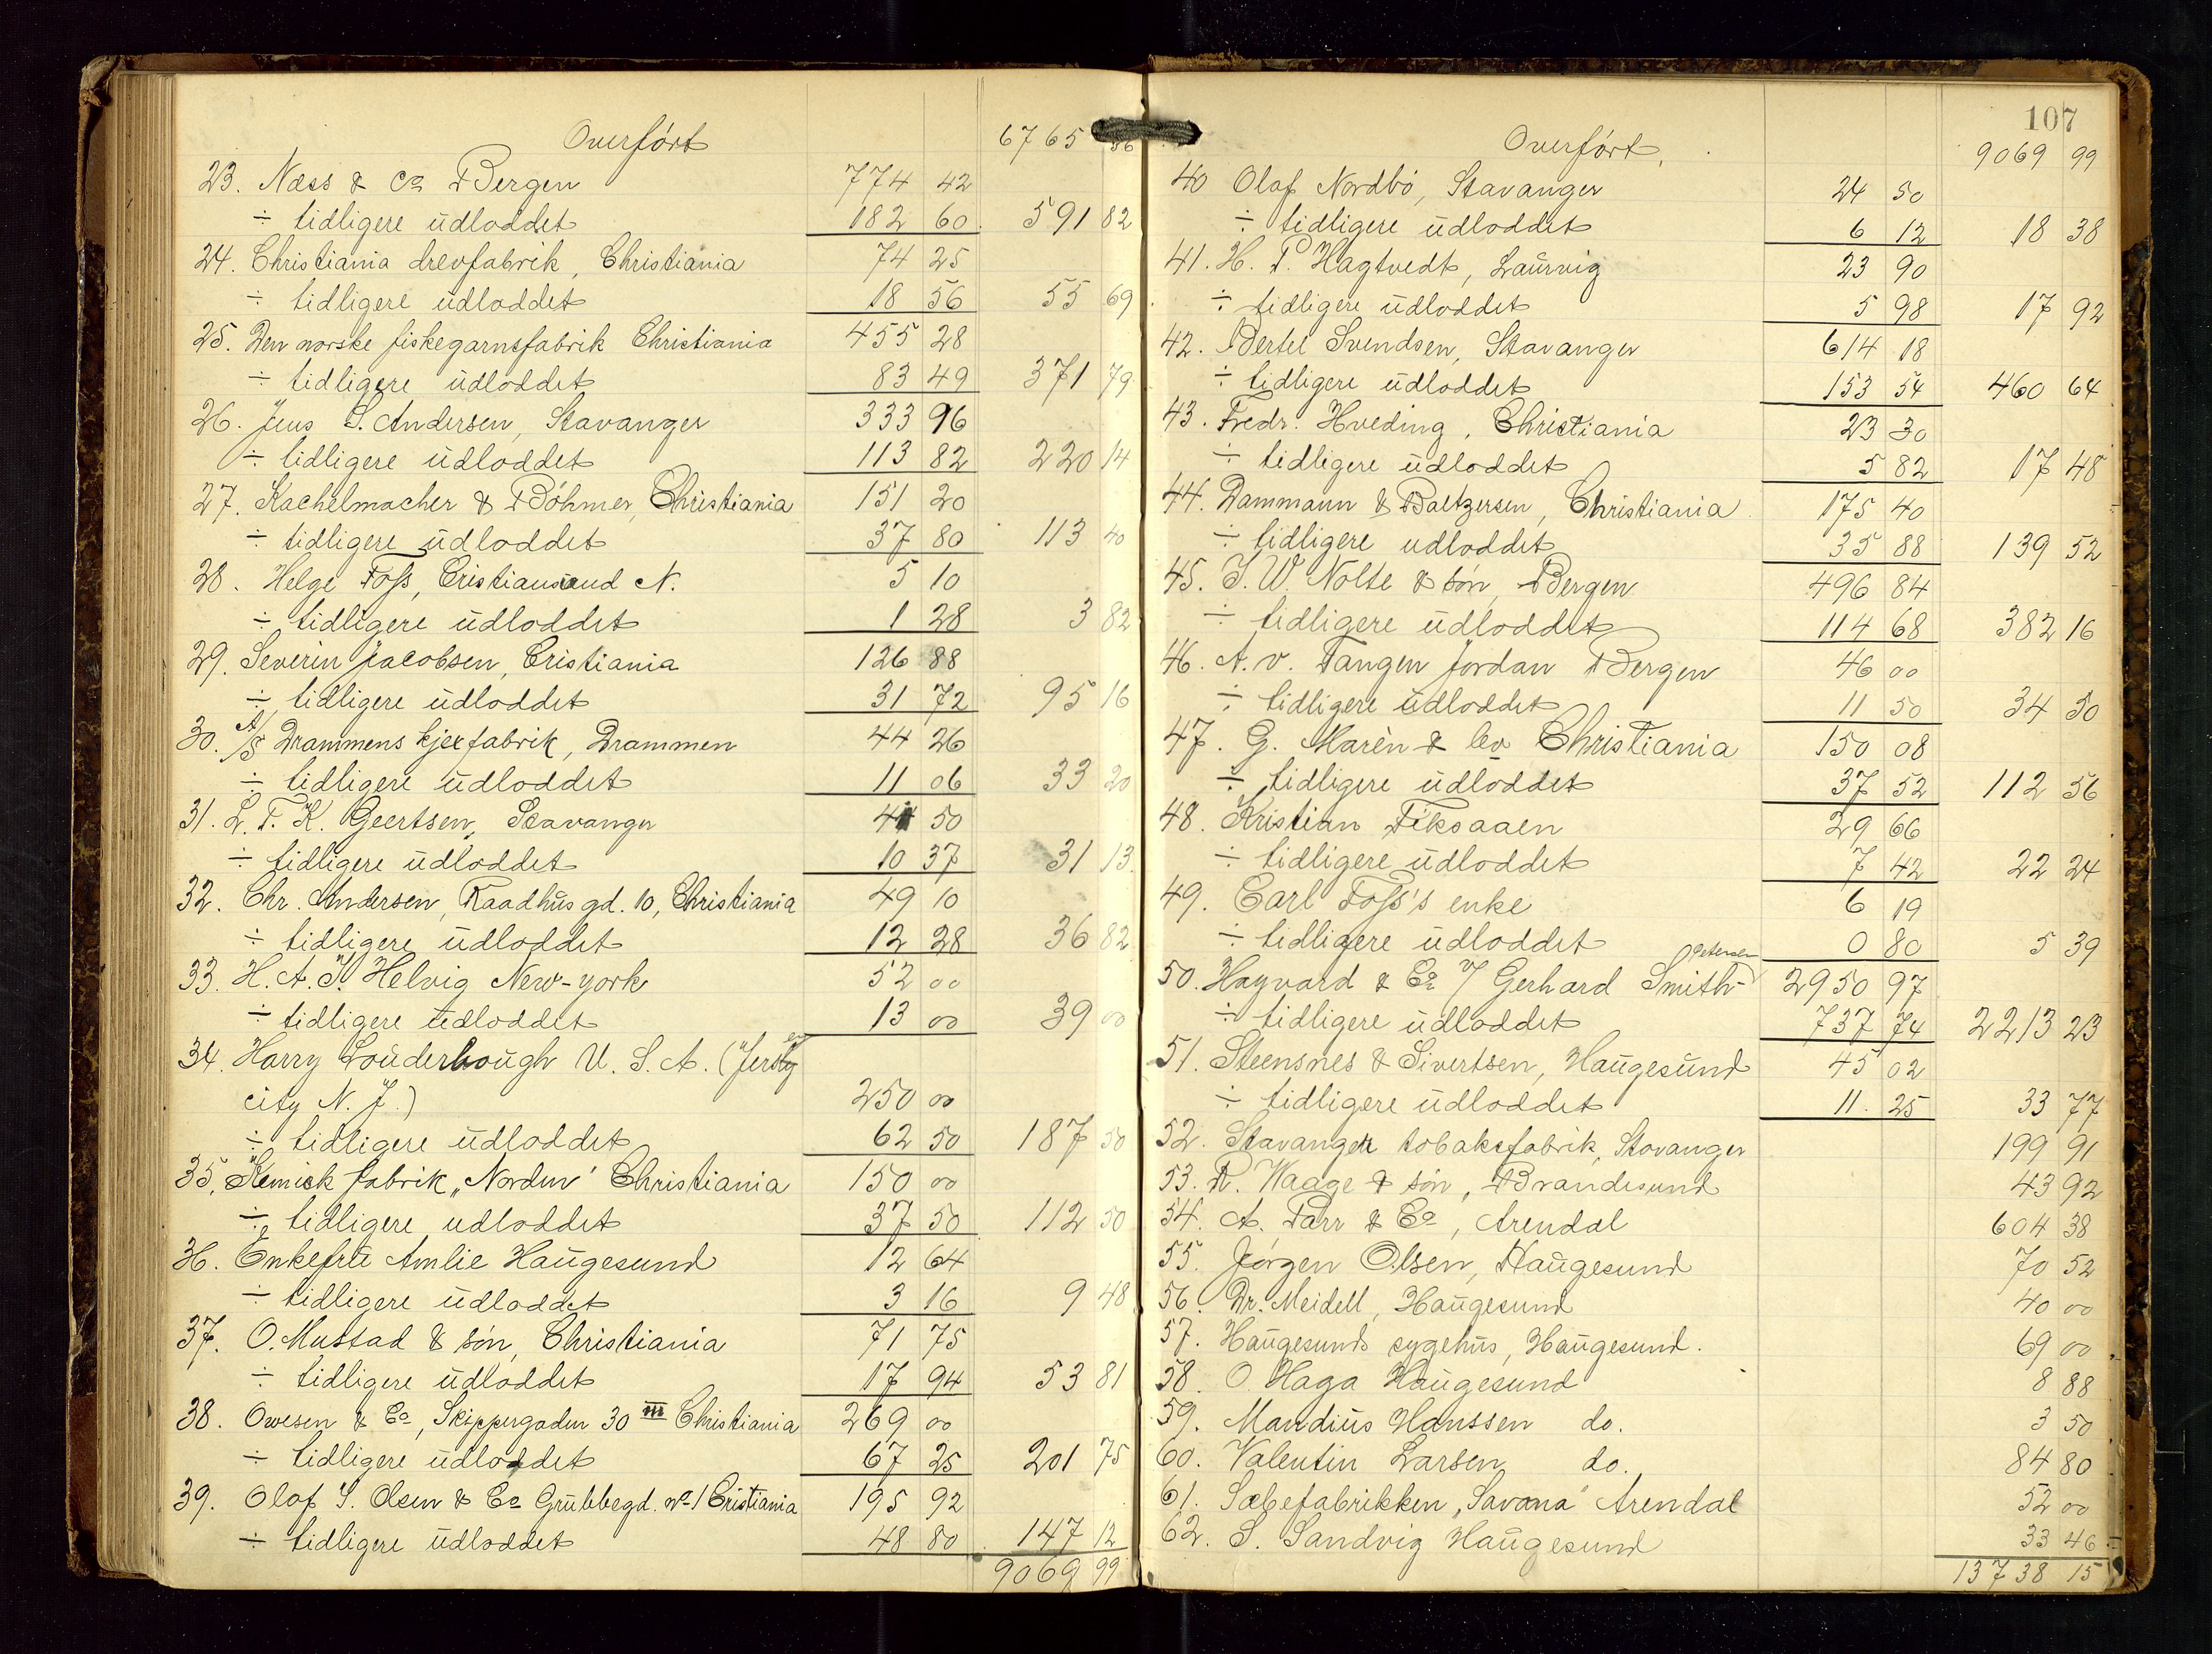 Overført 6765 56
23. Næss & Co Bergen 774 42
÷ tidligere udloddet 182 60 591 82
24. Christiania drevfabrik, Christiania 74 25
÷ tidligere udloddet 18 56 55 69
25. Den norske fiskegarnsfabrik Christiania 455 28
÷ tidligere udloddet 83 49 371 79
26. Jens S. Andersen, Stavanger 333 96
÷ tidligere udloddet 113 82 220 14
27. Kachelmacher & Bøhmer, Christiania 151 20
÷ tidligere udloddet 37 80 113 40
28. Helge Foss, Cristiansund N. 5 10
÷ tidligere udloddet 1 28 3 82
29. Severin Jacobsen, Cristiania 126 88
÷ tidligere udloddet 31 72 95 16
30. A/S Drammens kjexfabrik, Drammen 44 26
÷ tidligere udloddet 11 06 33 20
31. L. T. K. Geertsen, Stavanger 41 50
÷ tidligere udloddet 10 37 31 13
32. Chr. Andersen, Raadhusgd. 10, Christiania 49 10
÷ tidligere udloddet 12 28 36 82
33. H. A. J. Helvig New-york 52 00
÷ tidligere udloddet 13 00 39 00
34. Harry Louderbough U. S. A. (Jersey
city N. J.) 250 00
÷ tidligere udloddet 62 50 187 50
35. Kemisk fabrik „Norden" Christiania 150 00
÷ tidligere udloddet 37 50 112 50
36. Enkefru Amlie Haugesund 12 64
÷ tidligere udloddet 3 16 9 48
37. O. Mustad & søn, Christiania 71 75
÷ tidligere udloddet 17 94 53 81
38. Owesen & Co, Skippergaden 30 III Christiania 269 00
÷ tidligere udloddet 67 25 201 75
39. Olaf S. Olsen & Co Grubbegd. No 1 Cristiania 195 92
÷ tidligere udloddet 48 80 147 12
9069 99
107
Overført. 9069 99
40 Olaf Nordbø, Stavanger 24 50
÷ tidligere udloddet 6 12 18 38
41. H. P. Hagtvedt, Laurvig 23 90
÷ tidligere udloddet 5 98 17 92
42. Bertel Svendsen, Stavanger 614 18
÷ tidligere udloddet 153 54 460 64
43. Fredr. Hveding, Christiania 23 30
÷ tidligere udloddet 5 82 17 48
44. Dammann & Baltzersen, Christiania 175 40
÷ tidligere udloddet 35 88 139 52
45. J. W. Nolte & søn, Bergen 496 84
÷ tidligere udloddet 114 68 382 16
46. A. v. Tangen Jordan Bergen 46 00
÷ tidligere udloddet 11 50 34 50
47. G. Marèn & Co Christiania 150 08
÷ tidligere udloddet 37 52 112 56
48. Kristian Fiksaaen 29 66
÷ tidligere udloddet 7 42 22 24
49. Carl Foss's enke 6 19
÷ tidligere udloddet 0 80 5 39
Petersen
50. Hayvard & Co v/ Gerhard Smith 2950 97
÷ tidligere udloddet 737 74 2213 23
51. Steensnes & Sivertsen, Haugesund 45 02
÷ tidligere udloddet 11. 25 33 77
52. Stavanger tobaksfabrik, Stavanger 199 91
53. R. Waage & søn, Brandesund 43 92
54. A. Parr & Co, Arendal 604 38
55. Jørgen Olsen, Haugesund 70 52
56. Dr. Meidell, Haugesund 40 00
57. Haugesunds sygehus, Haugesund. 69 00
58. O. Haga Haugesund 8 88
59. Mandius Hanssen do. 3 50
60. Valentin Larsen do. 84 80
61. Sæbefabrikken „Savona" Arendal 52 00
62. S. Sandvig Haugesund 33 46
13738 15